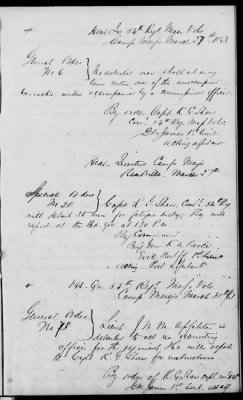 Head Qrs 54th Regt Mass Vols
Camp Meigs March 27th 1863
General Order
No 6. No enlisted man shall at any
time enter one of the unoccupied
barracks, unless accompanied by a commissioned officer.
By order Capt R. G. Shaw
Com'g 54th Reg Mass Vols
1st Lieut
acting adjutant
Head Quarters Camp Meigs
Readville March 27th
Special Order
No 28. Capt R. G. Shaw Com'g 54th Reg
will detail 25 men for fatigue duty; they will
report at the Hd. Qrs at 1.30 P.M.
By Command
Brig Gen R. A. Peirce
1st Lieut
acting Post Adjutant
Hd. Qrs 54th Regt Mass Vols
Camp Meigs March 30th 63
General Order
No 78 Lieut J. W. M. Appleton is
detailed to act as recruiting
officer for the regiment. He will report
to Capt R. G. Shaw for instructions
By order of R. G. Shaw Capt
1st Lieut.